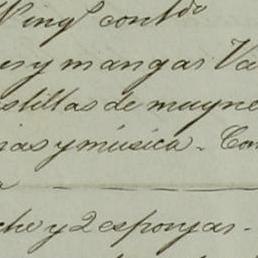 Wingº contdo
es y mangas Va
stillas de muyne
ias y música. Con
a
che y 2 esponjas.